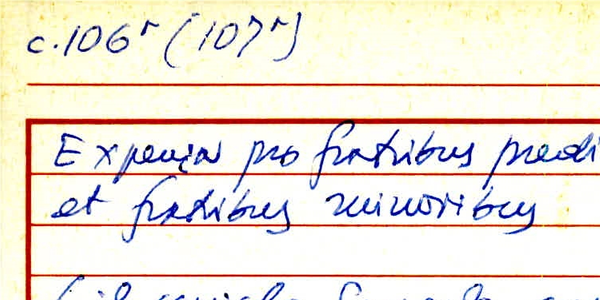 c.106r (107r)
Expensa pro fratribus predi
et fratribus minoribus